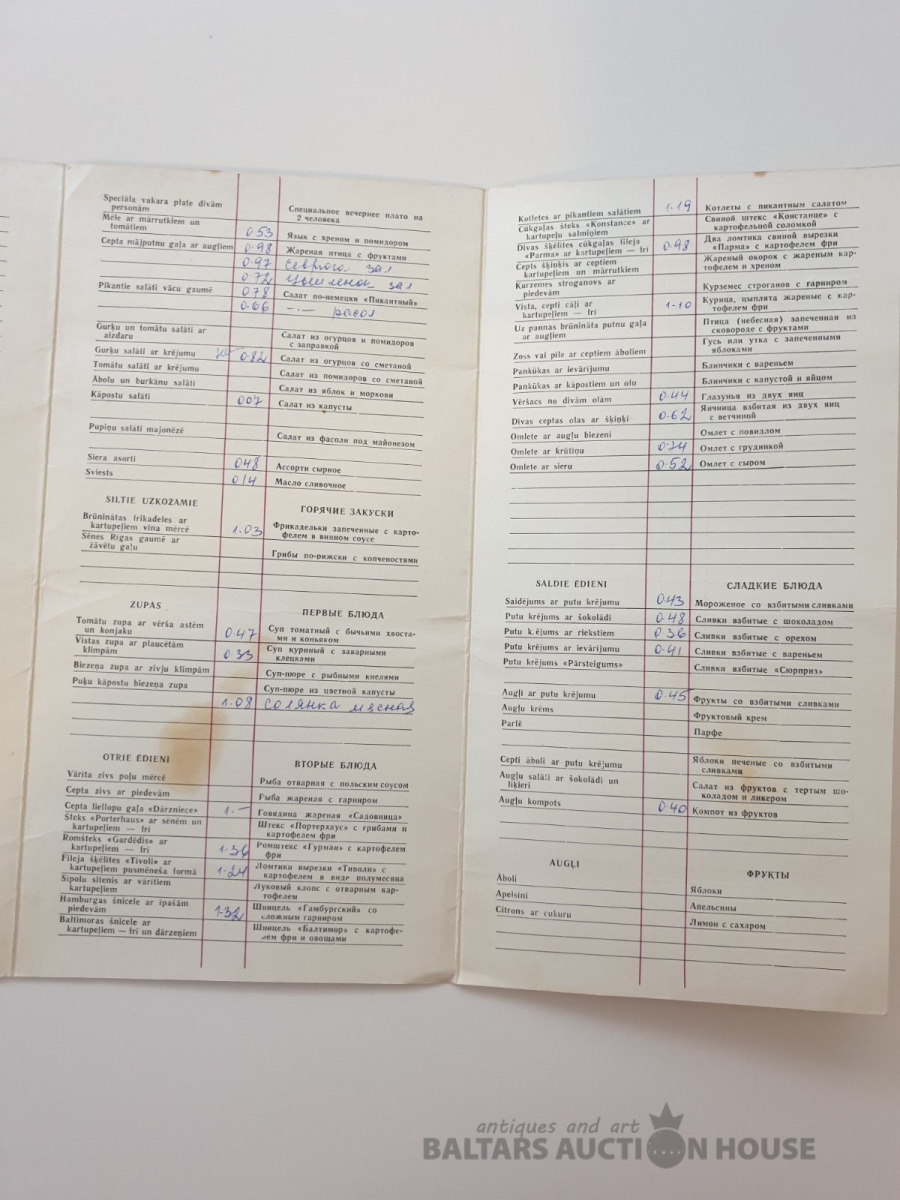 Speciāla vakara plate divām
personām
Специальное вечернее плато на
2 человека
Mēle ar mārrutkiem un
tomātiem
0-53
Язык с хреном и помидором
Cepta mājputnu gaļa ar augļiem
0-98
Жареная птица с фруктами
0-97
зал
0-72
цыпленок зал
Pikantie salāti vācu gaumē
0-78
Салат по-немецки «Пикантный»
0-66
Gurķu un tomātu salāti ar
aizdaru
Салат из огурцов и помидоров
с заправкой
Gurķu salāti ar krējumu
0-82
Салат из огурцов со сметаной
Tomātu salāti ar krējumu
Салат из помидоров со сметаной
Ābolu un burkānu salāti
Салат из яблок и моркови
Kāpostu salāti
007
Салат из капусты
Pupiņu salāti majonēzē
Салат из фасоли под майонезом
Siera asorti
048
Ассорти сырное
Sviests
014
Масло сливочное
SILTIE UZKOŽAMIE
ГОРЯЧИЕ ЗАКУСКИ
Brūninātas frikadeles ar
kartupeļiem vīna mērcē
1.03
Фрикадельки запеченные с карто-
фелем в винном соусе
Sēnes Rīgas gaumē ar
žāvētu gaļu
Грибы по-рижски с копченостями
ZUPAS
ПЕРВЫЕ БЛЮДА
Tomātu zupa ar vērša astēm
un konjaku
0-47
Суп томатный с бычьими хвоста-
ми и коньяком
Vistas zupa ar plaucētām
klimpām
0-33
Суп куриный с заварными
клецками
Biezeņa zupa ar zivju klimpām
Суп-пюре с рыбными кнелями
Puķu kāpostu biezeņa zupa
Суп-пюре из цветной капусты
1-08
солянка мясная
OTRIE ĒDIENI
ВТОРЫЕ БЛЮДА
Vārīta zivs poļu mērcē
Рыба отварная с польским соусом
Cepta zivs ar piedevām
Рыба жареная с гарниром
Cepta liellopu gaļa «Dārzniece»
1.-
Говядина жареная «Садовница»
Steks «Porterhaus» ar sēnēm un
kartupeļiem — frī
Штекс «Портерхаус» с грибами и
картофелем фри
Romšteks «Gardēdis» ar
kartupeļiem — frī
1-36
Ромштекс «Гурман» с картофелем
фри
Fileja šķēlītes «Tivoli» ar
kartupeļiem pusmēneša formā
1-24
Ломтики вырезки «Тиволи» с
картофелем в виде полумесяца
Sīpolu sitenis ar vārītiem
kartupeļiem
Луковый клопс с отварным кар-
тофелем
Hamburgas šnicele ar īpašām
piedevām
1-32
Шницель «Гамбургский» со
сложным гарниром
Baltimoras šnicele ar
kartupeļiem — frī un dārzeņiem
Шницель «Балтимор» с картофе-
лем фри и овощами
Kotletes ar pikantiem salātiem
1-19
Котлеты с пикантным салатом
Cūkgaļas šteks «Konstance» ar
kartupeļu salmiņiem
Свиной штекс «Констанце» с
картофельной соломкой
Divas šķēlītes cūkgaļas fileja
«Parma» ar kartupeļiem — frī
0-98
Два ломтика свиной вырезки
«Парма» с картофелем фри
Cepts šķiņķis ar ceptiem
kartupeļiem un mārrutkiem
Жареный окорок с жареным кар-
тофелем и хреном
Kurzemes stroganovs ar
piedevām
Курземес строганов с гарниром
Vista, cepti cāļi ar
kartupeļiem — frī
1-10
Курица, цыплята жареные с кар-
тофелем фри
Uz pannas brūnināta putnu gaļa
ar augļiem
Птица (небесная) запеченная из
сковороде с фруктами
Zoss vai pīle ar ceptiem āboliem
Гусь или утка с запеченными
яблоками
Pankūkas ar ievārījumu
Блинчики с вареньем
Pankūkas ar kāpostiem un olu
Блинчики с капустой и яйцом
Vēršacs no divām olām
0-44
Глазунья из двух яиц
Divas ceptas olas ar šķiņķi
0-62
Яичница взбитая из двух яиц
с ветчиной
Omlete ar augļu biezeni
Омлет с повидлом
Omlete ar krūtiņu
0-74
Омлет с грудинкой
Omlete ar sieru
0-52
Омлет с сыром
SALDIE ĒDIENI
СЛАДКИЕ БЛЮДА
Saldējums ar putu krējumu
0-43
Мороженое со взбитыми сливками
Putu krējums ar šokolādi
0-48
Сливки взбитые с шоколадом
Putu k.ējums ar riekstiem
036
Сливки взбитые с орехом
Putu krējums ar ievārījumu
0-41
Сливки взбитые с вареньем
Putu krējums «Pārsteigums»
Сливки взбитые «Сюрприз»
Augļi ar putu krējumu
0-45
Фрукты со взбитыми сливками
Augļu krēms
Фруктовый крем
Parfē
Парфе
Cepti āboli ar putu krējumu
Яблоки печеные со взбитыми
сливками
Augļu salāti ar šokolādi un
liķieri
Салат из фруктов с тертым шо-
коладом и ликером
Augļu kompots
0-40
Компот из фруктов
AUGĻI
ФРУКТЫ
Āboli
Яблоки
Apelsīni
Апельсины
Citrons ar cukuru
Лимон с сахаром
antiques and art
BALTARS AUCTION HOUSE